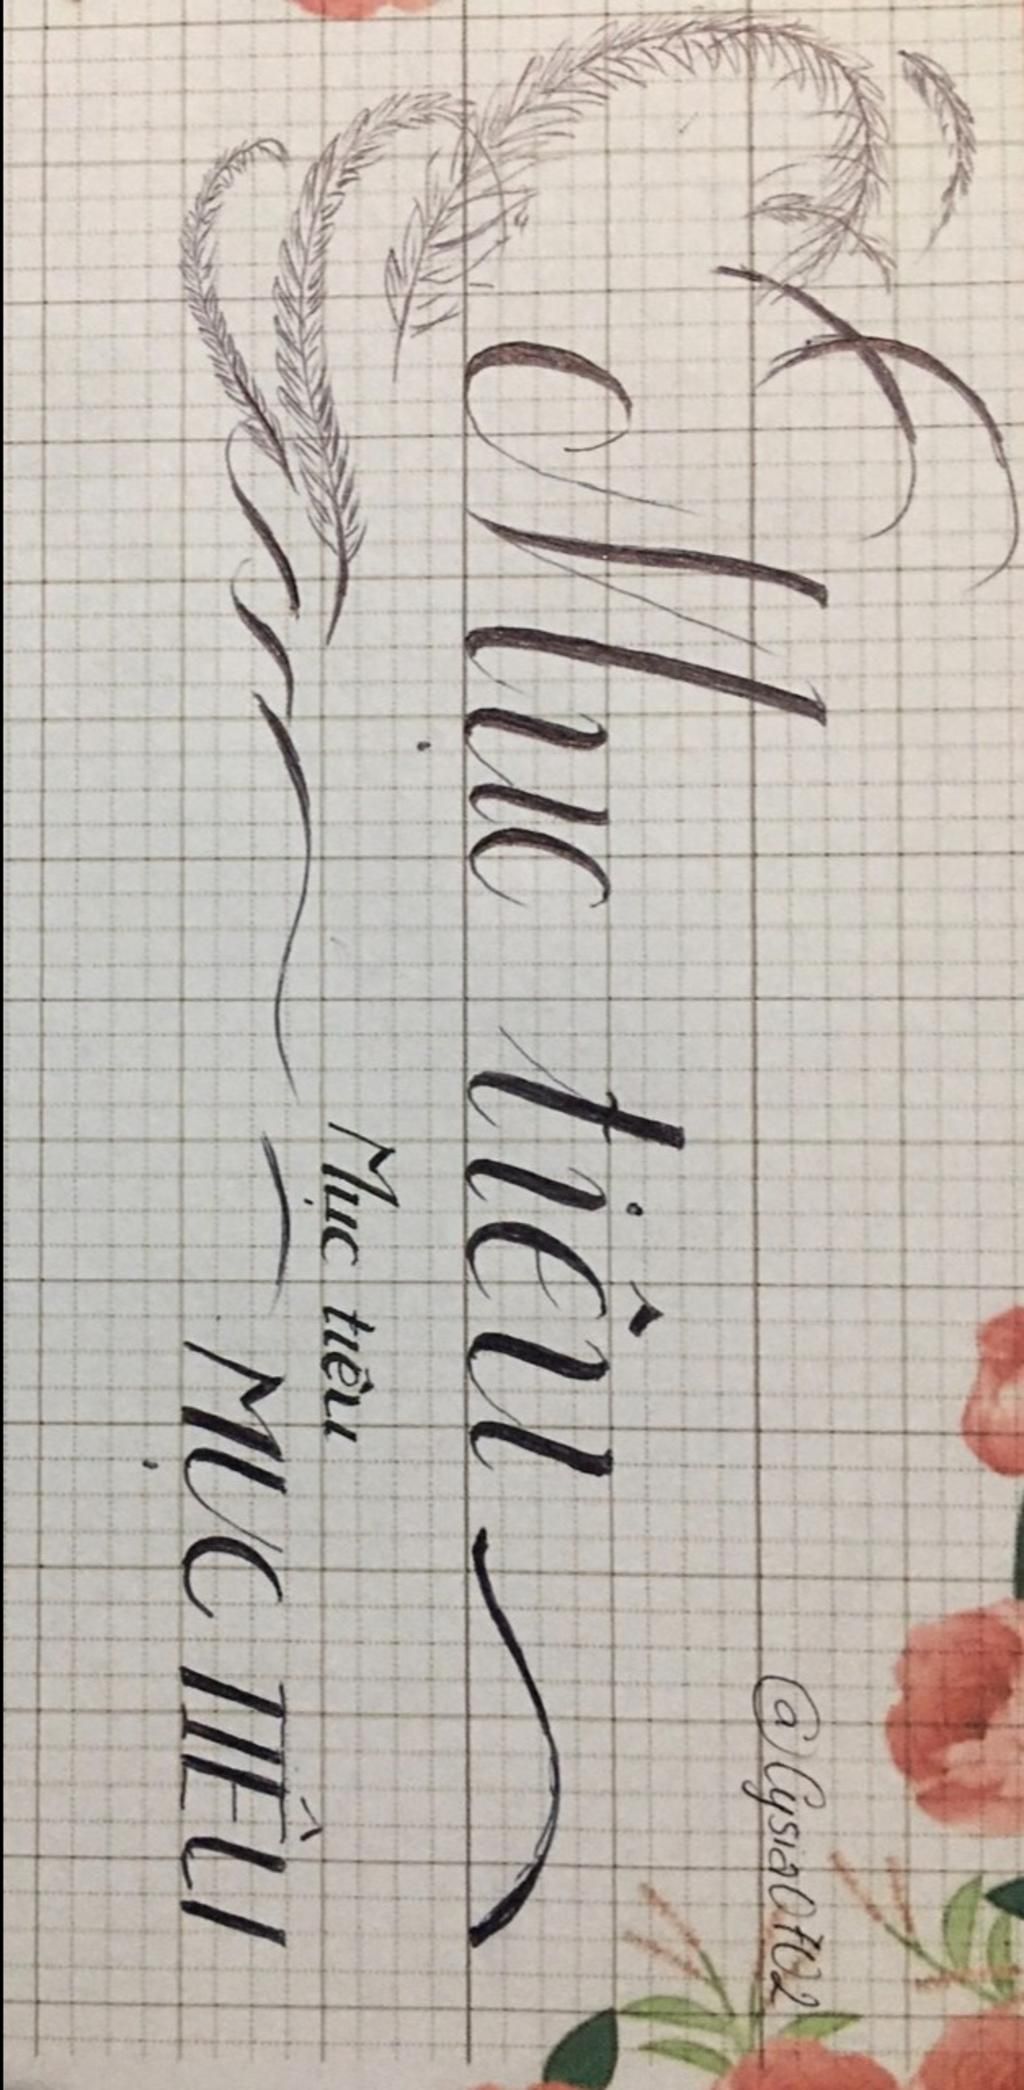 @lysia0702
Mục tiêu
Mục tiêu
MỤC TIÊU